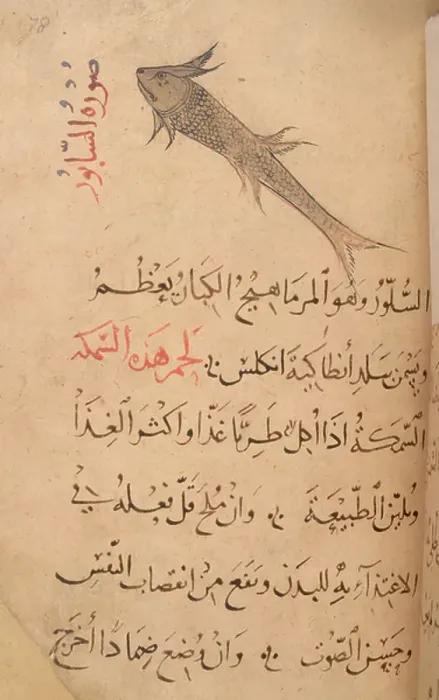 صورة السابور
السلّور وهو المرماهيج الكبار يعظم
ويسمن ببلد أنطاكية انكلس لحم هذه السمكة
السمكة اذا اكل طريا غذا واكثر الغذا
ويلين الطبيعة وان ملح قل فعله في
الاغتذاء به للبدن ونفع من انتصاب النفس
وحسن الصوت وان وضع ضمادا أخرج